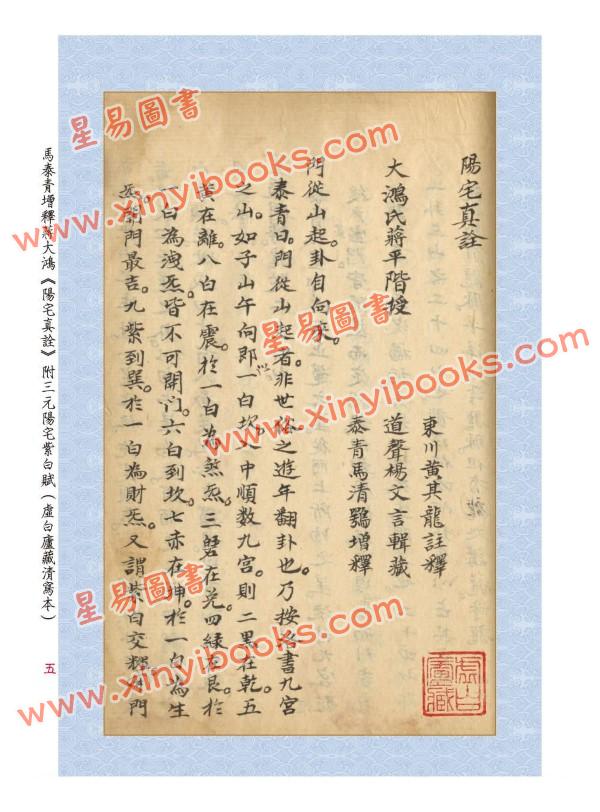 陽宅真詮
東川黃其龍註釋
大鴻氏蔣平階授 道聲楊文言輯藏
泰青馬清鶚增釋
門從山起卦自向來。
泰青曰。門從山起者。非世俗之遊年翻卦也。乃按洛書九宮
之山。如子山午向即以一白坎入中。順數九宮。則二黑在乾。五
黃在離。八白在震。於一白為煞炁。三碧在兌。四綠在艮。於
一白為洩炁。皆不可開門。六白到坎。七赤在坤。於一白為生
炁。開門最吉。九紫到巽。於一白為財炁。又謂紫白交輝。門
虛白廬藏
馬泰青增釋蔣大鴻《陽宅真詮》附三元陽宅紫白賦（虛白廬藏清寫本）
五
星易圖書
www.xinyibooks.com
星易圖書
www.xinyibooks.com
星易圖書
www.xinyibooks.com
星易圖書
www.xinyibooks.com